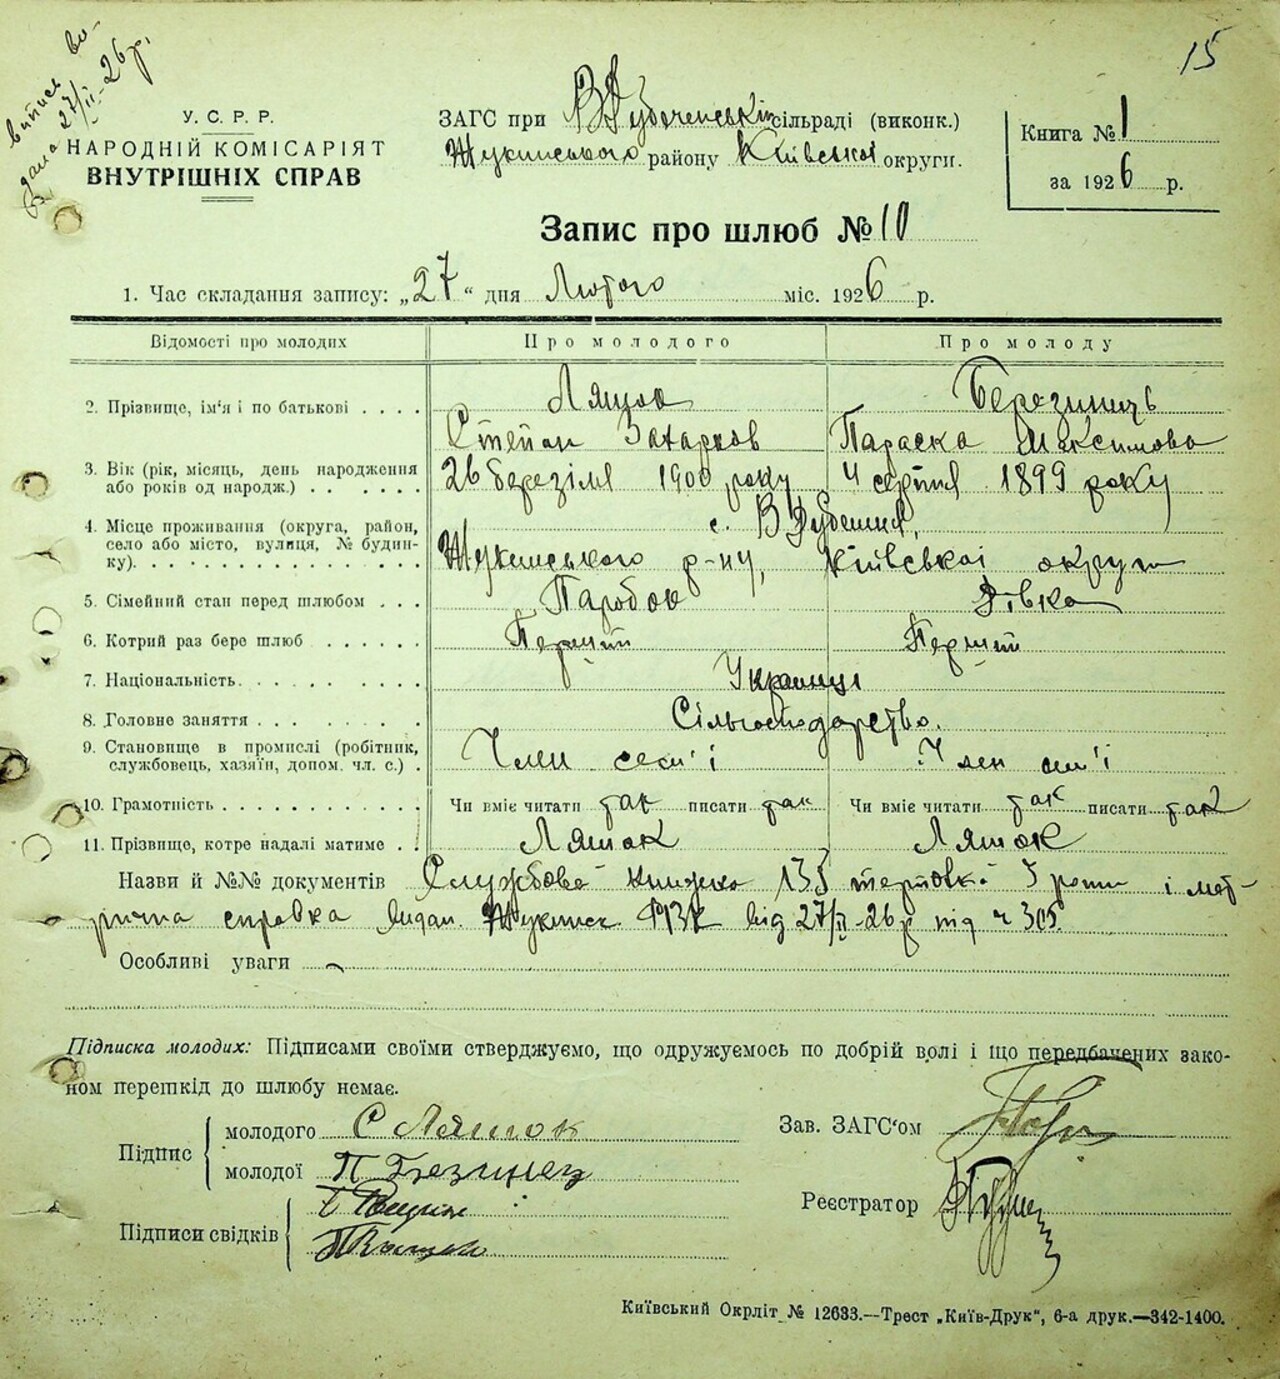 15
випись видана 27/II-26р.
У. С. Р. Р.
НАРОДНІЙ КОМІСАРІЯТ
ВНУТРІШНІХ СПРАВ
ЗАГС при В Дубеченській сільраді (виконк.)
Жукинського району Київської округи.
Книга № 1
за 1926 р.
Запис про шлюб № 10
1. Час складання запису: „27“ дня Лютого міс. 1926 р.
Відомості про молодих Про молодого Про молоду
2. Прізвище, ім'я і по батькові . . . . Ляшок Березинець
Степан Захарков Параска Максимова
3. Вік (рік, місяць, день народження 26 березіля 1900 року 4 серпня 1899 року
або років од народж.) . . . . . . .
4. Місце проживання (округа, район, с. В Дубешня,
село або місто, вулиця, № будин-
ку). . . . . . . . . . . . . . . Жукинського р-ну, Київської округи
5. Сімейний стан перед шлюбом . . . Паробок Дівка
6. Котрий раз бере шлюб . . . . . . Перший Перший
7. Національність. . . . . . . . . . Українці
8. Головне заняття . . . . . . . . . Сільгосподарство.
9. Становище в промислі (робітник, Член сем'ї Член сем'ї
службовець, хазяїн, допом. чл. с.) .
10. Грамотність . . . . . . . . . . . Чи вміє читати так писати так Чи вміє читати так писати так
11. Прізвище, котре надалі матиме . . Ляшок Ляшок
Назви й №№ документів Службова книжка 135 роти і мет-
рична справка видан. Жукинск РВК від 27/II-26р під ч 305.
Особливі уваги
Підписка молодих: Підписами своїми стверджуємо, що одружуємось по добрій волі і що передбачених зако-
ном перешкід до шлюбу немає.
Підпис
молодого С Ляшок
молодої П Безинец
Підписи свідків
Зав. ЗАГС'ом
Реєстратор
Київський Окрліт № 12633.—Трест „Київ-Друк“, 6-а друк.—342-1400.